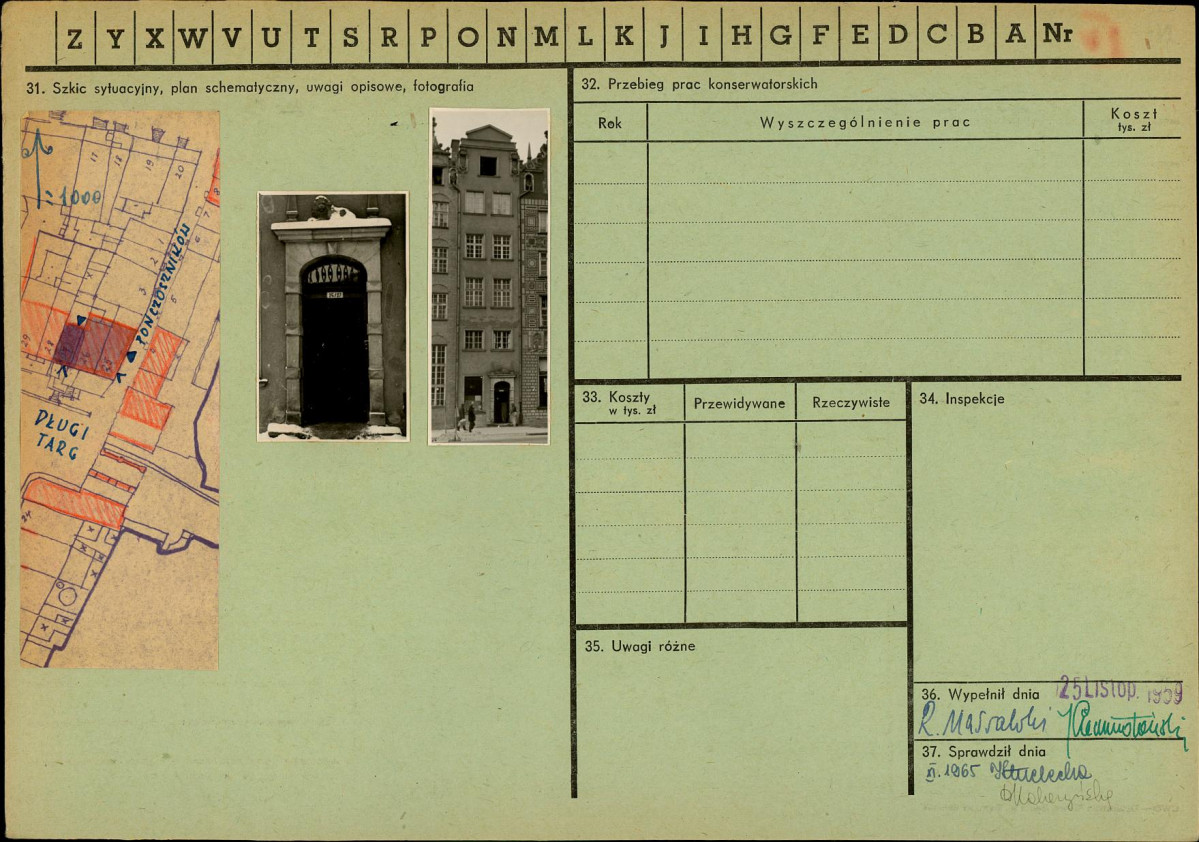 Z Y X W V U T S R P O N M L K J I H G F E D C B A Nr
31. Szkic sytuacyjny, plan schematyczny, uwagi opisowe, fotografia
1:1000
11
18
19
20
7
8
6
1
2
3
4
5
POŃCZOSZNIKÓW
29
28
DŁUGI
TARG
24
32. Przebieg prac konserwatorskich
Rok
Wyszczególnienie prac
Koszt
tys. zł
33. Koszty
w tys. zł
Przewidywane
Rzeczywiste
34. Inspekcje
35. Uwagi różne
36. Wypełnił dnia 25 Listop. 1959
R. Massalski
37. Sprawdził dnia
XI. 1965